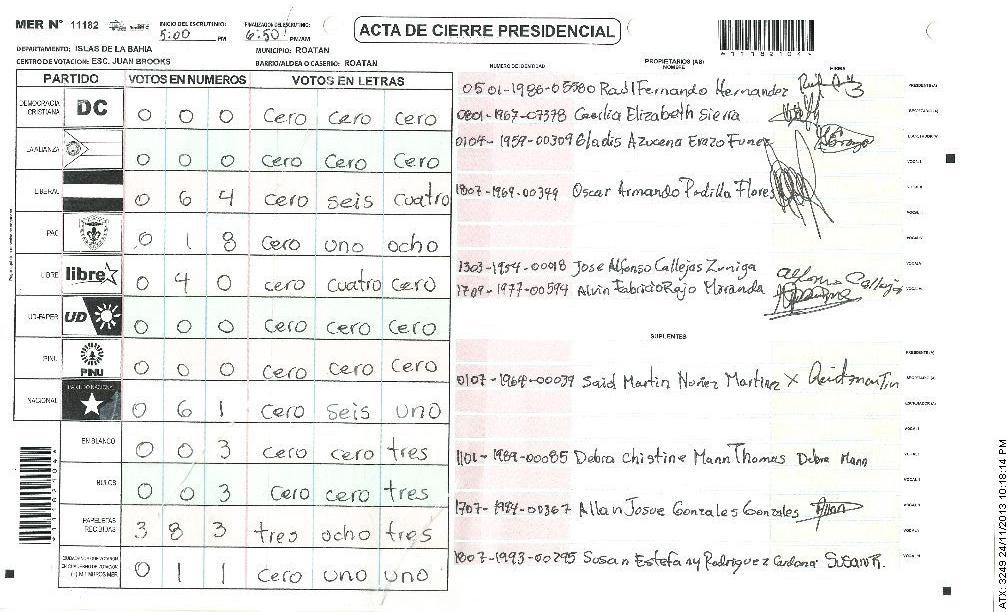 MER N° 11182
INICIO DEL ESCRUTINIO: 5:00 PM
FINALIZACION DEL ESCRUTINIO: 6:50 PM/AM
ACTA DE CIERRE PRESIDENCIAL
111821044
DEPARTAMENTO: ISLAS DE LA BAHIA
MUNICIPIO: ROATAN
CENTRO DE VOTACION: ESC. JUAN BROOKS
BARRIO/ALDEA O CASERIO: ROATAN
PARTIDO VOTOS EN NUMEROS VOTOS EN LETRAS
DEMOCRACIA CRISTIANA DC 0 0 0 Cero Cero Cero
LA ALIANZA 0 0 0 Cero Cero Cero
LIBERAL 0 6 4 Cero seis cuatro
PAC 0 1 8 Cero uno ocho
LIBRE libre 0 4 0 cero cuatro cero
UD-FAPER UD 0 0 0 Cero Cero Cero
PINU PINU 0 0 0 Cero Cero Cero
NACIONAL PARTIDO NACIONAL 0 6 1 Cero seis uno
EN BLANCO 0 0 3 Cero cero tres
NULOS 0 0 3 Cero cero tres
PAPELETAS RECIBIDAS 3 8 3 tres ocho tres
0 1 1 Cero uno uno
NUMERO DE IDENTIDAD
PROPIETARIOS (AS)
NOMBRE
FIRMA
0501-1986-05580 Raul Fernando Hernandez
PRESIDENTE(A)
0801-1967-07378 Cecilia Elizabeth Sierra
SECRETARIO(A)
0104-1957-00309 Gladis Azucena Erazo Funez
ESCRUTADOR(A)
VOCAL I
1807-1969-00349 Oscar Armando Padilla Flores
1303-1954-00018 Jose Alfonso Callejas Zuniga Alfonso Callejas
1709-1977-00594 Alvin Fabricio Rajo Maranda
SUPLENTES
PRESIDENTE(A)
0107-1964-00039 Said Martin Nuñez Martinez X
SECRETARIO(A)
ESCRUTADOR(A)
VOCAL I
1101-1989-00085 Debra Chistine Mann Thomas Debra Mann
1707-1994-00367 Allan Josue Gonzales Gonzales Allan
1807-1993-00295 Susan Estefany Rodriguez Cardona Susan R.
111821044
ATX: 3249 24/11/2013 10:18:14 PM